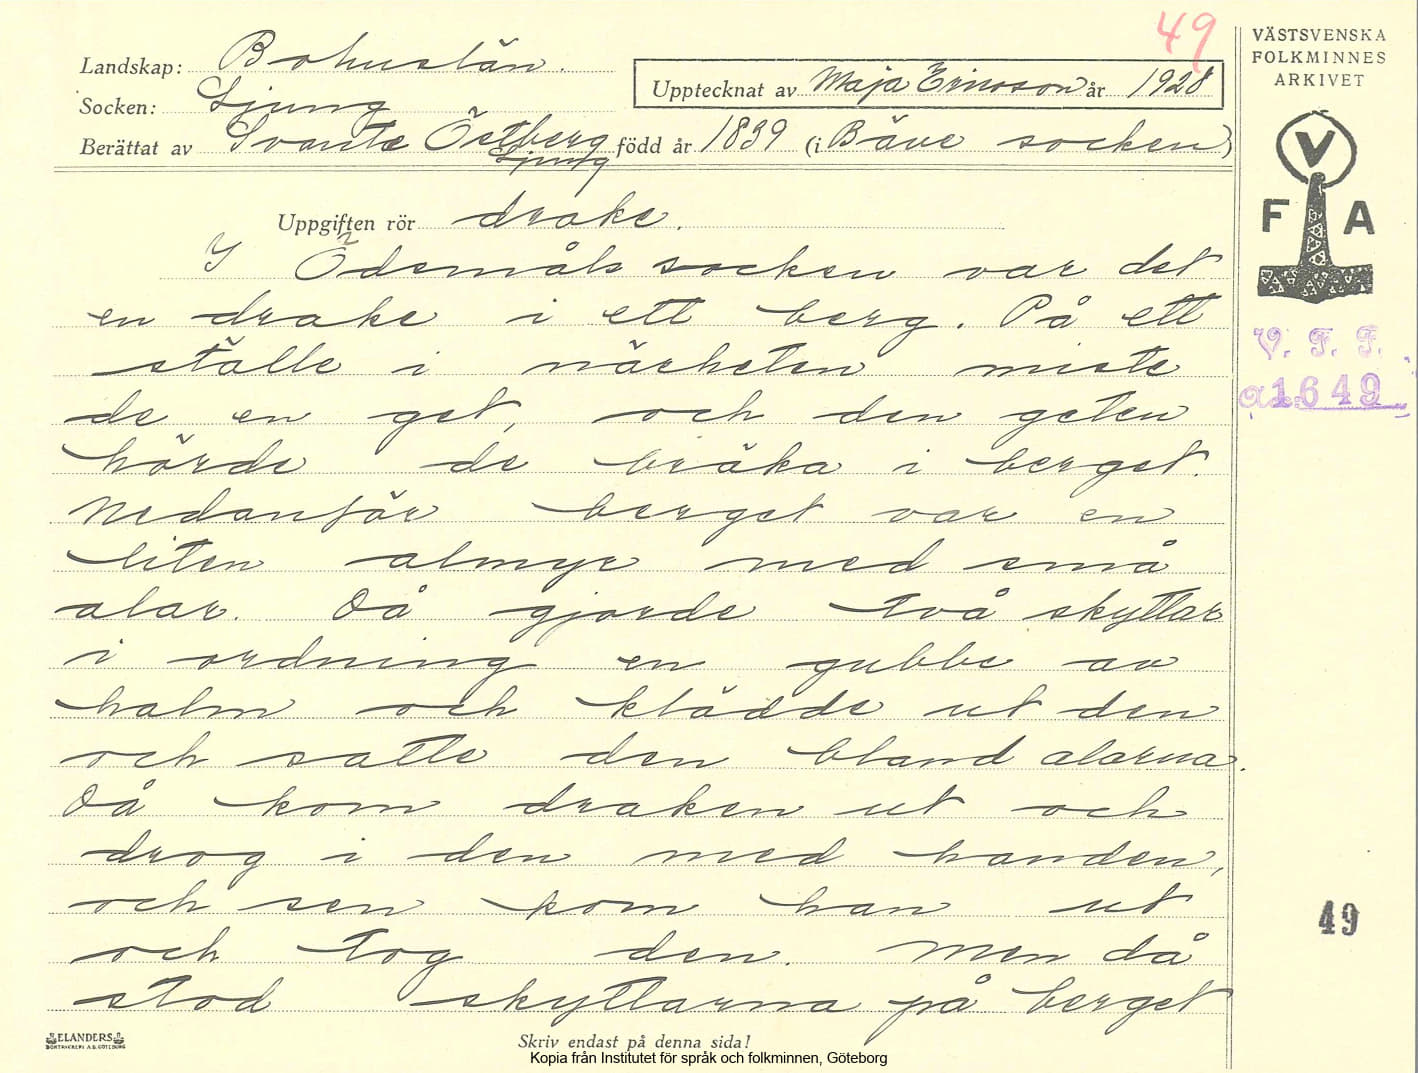 49
VÄSTSVENSKA
FOLKMINNES
ARKIVET
Landskap: Bohuslän.
Upptecknat av Maja Ericsson år 1928
Socken: Ljung
Berättat av Svante Östberg född år 1839 (i Bäve socken)
Ljung
V
F A
Uppgiften rör drake.
I Ödsmåls socken var det
en drake i ett berg. På ett
ställe i närheten miste
de en get, och den geten
hörde de bräka i berget.
Nedanför berget var en
liten almyr med små
alar. Då gjorde två skyttar
i ordning en gubbe av
halm och klädde ut den
och satte den bland alarna.
Då kom draken ut och
drog i den med handen,
och sen kom han ut
och tog den. Men då
stod skyttarna på berget
V. F. F.
1649
49
ELANDERS
BOKTRYCKERI A.B. GÖTEBORG
Skriv endast på denna sida!
Kopia från Institutet för språk och folkminnen, Göteborg